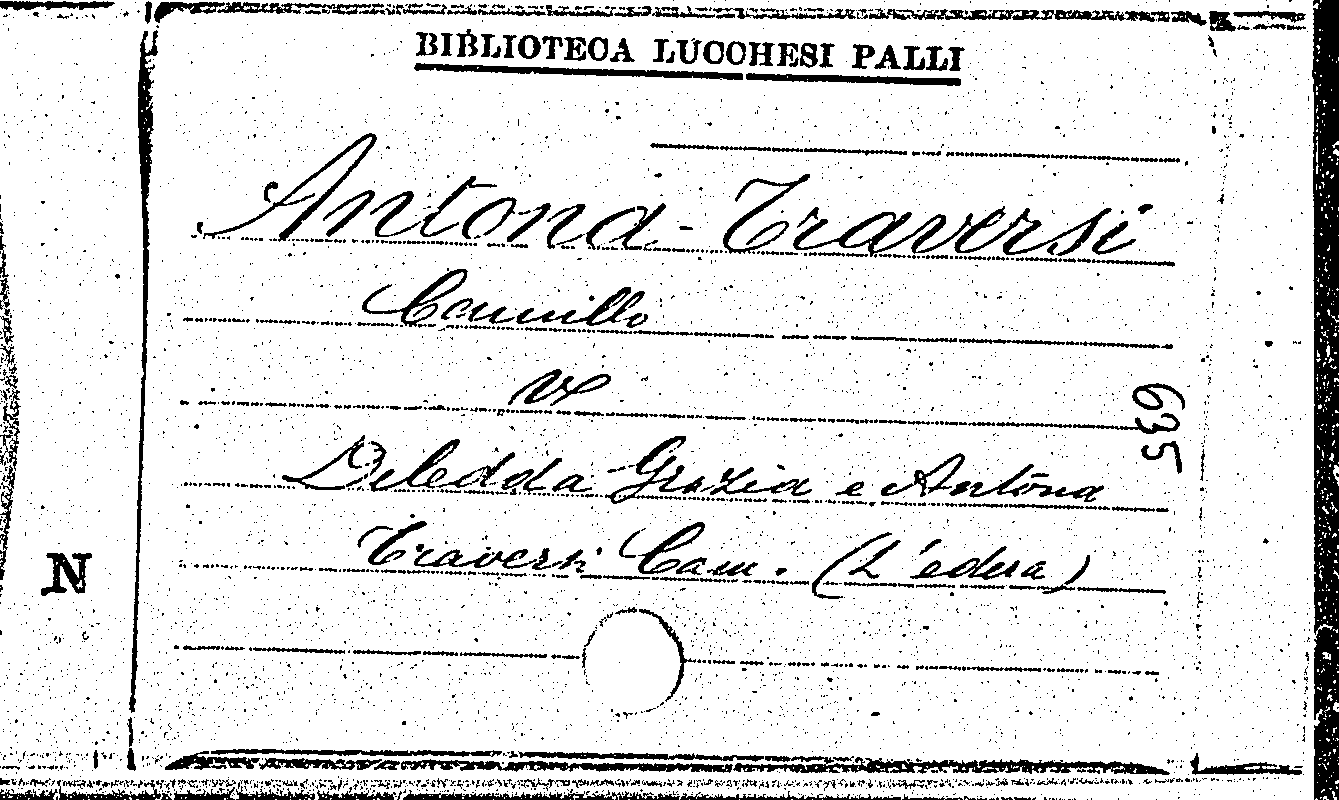 BIBLIOTECA LUCCHESI PALLI
Antona-Traversi
Camillo
V
Deledda Grazia e Antona
Traversi Cam. (L'edera)
635
N